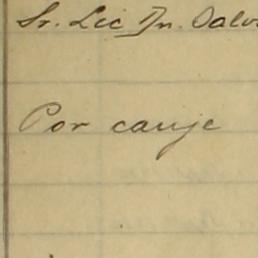 Sr. Lic Dn. Salv
Por canje